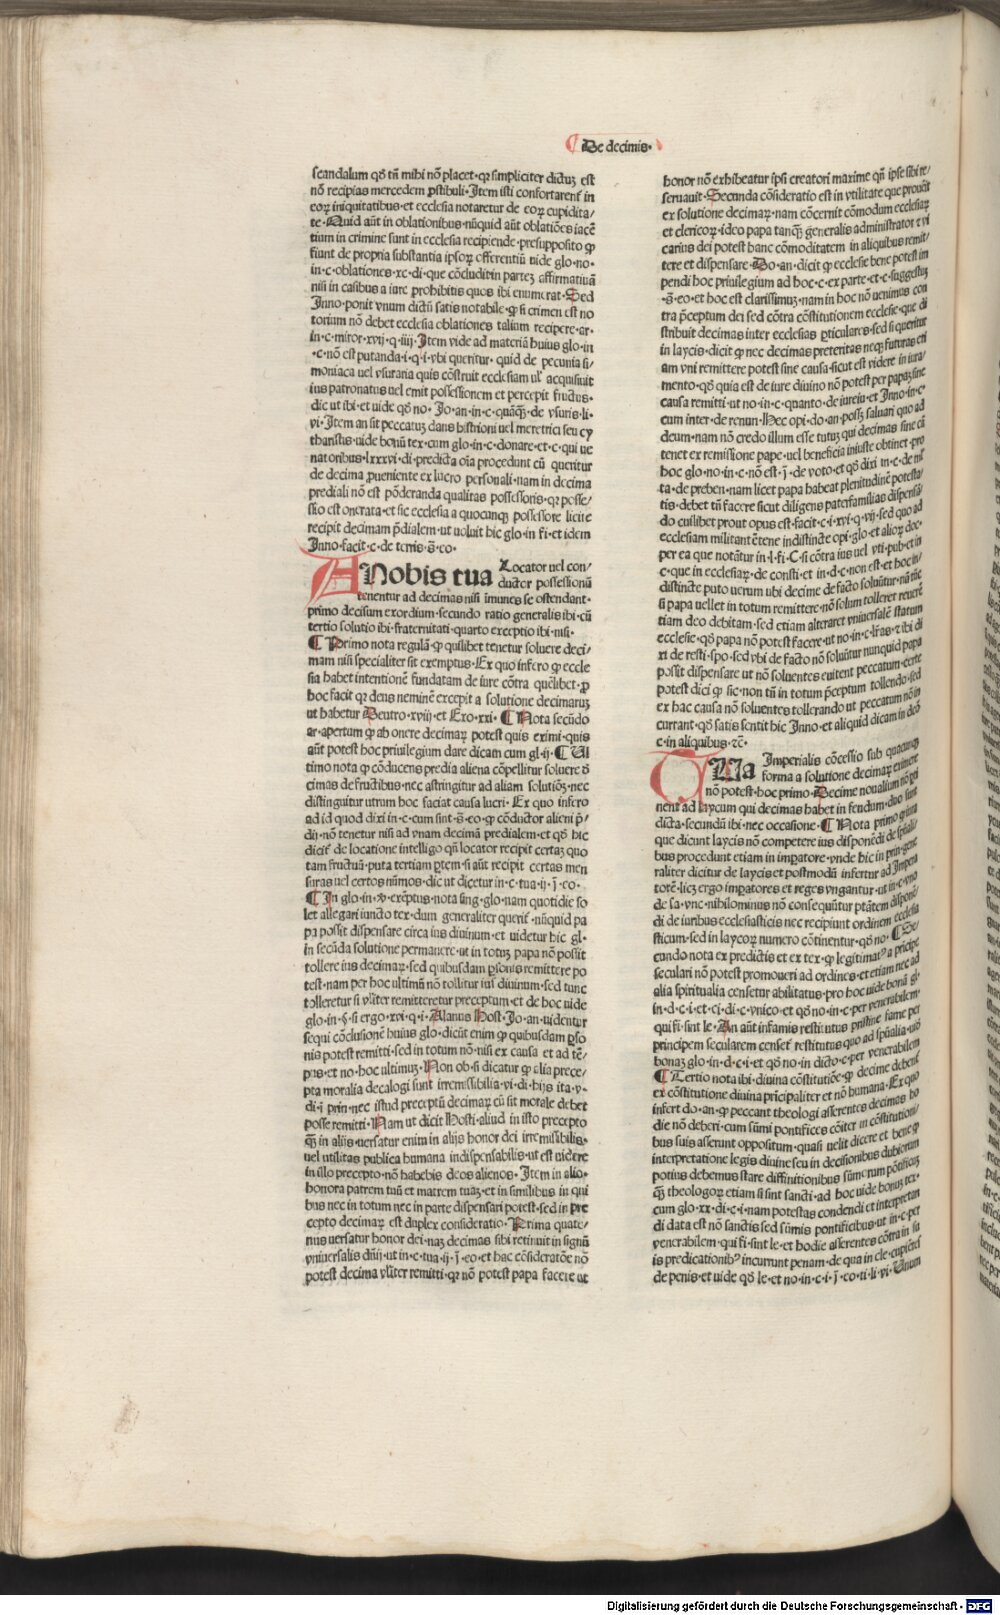 De decimis·
scandalum qd̕ tñ mihi nõ placet·qꝛ simpliciter dictuꝫ est
nõ recipias mercedem ꝓstibuli·Item isti confortarent᷑ in
eoꝝ iniquitatibus·et ecclesia notaretur de eoꝝ cupidita/
te·Quid aũt in oblationibus·nũquid aũt oblatiões iacẽ
tium in crimine sunt in ecclesia recipiende·presupposito ꝙ
fiunt de propria substantia ipsoꝝ offerentiũ uide glo·no·
in·c·oblationes·xc·di·que cõcludit᷑ in parteꝫ affirmatiuã
nisi in casibus a iure prohibitis quos ibi enumerat·Sed
Inno·ponit vnum dictũ satis notabile·ꝙ si crimen est no
torium nõ debet ecclesia oblationes talium recipere·ar·
in·c·miror·xvij·q·iiij·Item vide ad materiã huius glo·in
·c·nõ est putanda·i·q·i·vbi queritur· quid de pecunia si/
moniaca uel vsuraria quis cõstruit ecclesiam uł acquisiuit
ius patronatus uel emit possessionem et percepit fructus·
dic ut ibi·et uide qd̕ no· Jo·an·in·c·quãꝙ̃·de vsuris·li·
vi·Item an sit peccatuꝫ dans histrioni uel meretrici seu cy
tharistis·uide bonũ tex·cum glo·in·c·donare·et·c·qui ue
natoribus·lxxxvi·di·predicta oĩa procedunt cũ queritur
de decima ꝓueniente ex lucro personali·nam in decima
prediali nõ est põderanda qualitas possessoris·qꝛ posse/
ssio est onerata·et sic ecclesia a quocunqꝫ possessore licite
recipit decimam p̃dialem·ut uoluit hic glo·in fi·et idem
Inno·facit·c·de terris·s̃·eo·
A Nobis tua Locator uel con/
ductor possessionũ
tenentur ad decimas nisi ĩmunes se ostendant·
primo decisum exordium·secundo ratio generalis ibi·cũ
tertio solutio ibi·fraternitati·quarto exceptio ibi·nisi·
¶ Primo nota regulã·ꝙ quilibet tenetur soluere deci/
mam nisi specialiter sit exemptus·Ex quo infero ꝙ eccle
sia habet intentionẽ fundatam de iure cõtra quẽlibet·ꝓ
hoc facit qꝛ deus neminẽ excepit a solutione decimaruꝫ
ut habetur Deutro·xviij·et Exo·xxi· ¶ Nota secũdo
ar·apertum ꝙ ab onere decimaꝝ potest quis eximi·quis
aũt potest hoc priuilegium dare dicam cum gl·ij·¶ Ul
timo nota ꝙ cõducens predia aliena cõpellitur soluere d̕
cimas de fructibus·nec astringitur ad aliam solutiõꝫ·nec
distinguitur utrum hoc faciat causa lucri· Ex quo infero
ad id quod dixi in·c·cum sint·s̃·eo·ꝙ cõductor alieni p̃/
dij·nõ tenetur nisi ad vnam decimã predialem·et qd̕ hic
dicit᷑ de locatione intelligo qñ locator recipit certaꝫ quo
tam fructuũ·puta tertiam ꝑtem·si aũt recipit certas men
suras uel certos nũmos·dic ut dicetur in·c·tua·ij·j̃·eo·
tollere ius decimaꝝ·sed quibusdam ꝑsonis remittere po
test·nam per hoc ultimũ nõ tollitur ius diuinum·sed tunc
tolleretur si vłiter remitteretur preceptum·et de hoc uide
glo·in·§·si ergo·xvi·q·i·Alanus Host·Jo·an·uidentur
sequi cõclusionẽ huius glo·dicũt enim ꝙ quibusdam ꝑso
nis potest remitti·sed in totum nõ·nisi ex causa et ad tẽ/
pta moralia decalogi sunt irremissibilia·vi·di·hijs ita·v·
posse remitti·Nam ut dicit Hosti·aliud in isto precepto
ꝙ̃ in alijs·uersatur enim in alijs honor dei irremissibilis·
uel utilitas publica humana indispensabilis·ut est uidere
in illo precepto·nõ habebis deos alienos· Item in alio·
honora patrem tuũ et matrem tuaꝫ·et in similibus in qui
bus nec in totum nec in parte dispensari potest·sed in pre
cepto decimaꝝ est duplex consideratio·Prima quate/
nus uersatur honor dei·naꝫ decimas sibi retinuit in signũ
vniuersalis dñij·ut in·c·tua·ij·j̃·eo·et hac cõsideratõe nõ
potest decima vłiter remitti·qꝛ nõ potest papa facere ut
honor nõ exhibeatur ipsi creatori maxime qñ ipse sibi re/
seruauit·Secunda cõsideratio est in vtilitate que prouẽit
ex solutione decimaꝝ·nam cõcernit cõmodum ecclesiaꝝ
et clericoꝝ·ideo papa tanqꝫ generalis administrator ⁊ vi
carius dei potest hanc cõmoditatem in aliquibus remit/
tere et dispensare·Do·an·dicit ꝙ ecclesie bene potest im
pendi hoc priuilegium ad hoc·c·ex parte·et·c·suggestuꝫ
·s̃·eo·et hoc est clarissimuꝫ·nam in hoc nõ uenimus con
tra p̃ceptum dei sed cõtra cõstitutionem ecclesie·que di
stribuit decimas inter ecclesias ꝑticulares·sed si queritur
in laycis·dicit ꝙ nec decimas preteritas neqꝫ futuras eti
am vni remittere potest sine causa·sicut est videre in iura/
mento·qd̕ quia est de iure diuino nõ potest per papaꝫ sine
causa remitti·ut no·in·c·quanto·de iureiu·et Inno·in·c·
cum inter·de renun·Hec opi·do·an·possꝫ saluari quo ad
deum·nam nõ credo illum esse tutuꝫ qui decimas sine cã
tenet ex remissione pape·uel beneficia iniuste obtinet·pro
hoc glo·no·in·c·nõ est·j̃·de voto·et qd̕ dixi in·c·de mł
ta·de preben·nam licet papa habeat plenitudinẽ potesta/
tis·debet tñ facere sicut diligens paterfamilias dispensã/
do cuilibet prout opus est·facit·c·i·xvi·q·vij·sed quo ad
per ea que notãtur in·l·fi·C·si cõtra ius uel vti·pub·et in
c·que in ecclesiaꝝ·de consti·et in·d·c·non est·et hoc in/
distincte puto uerum ubi decime de facto soluũtur·nã tũc
si papa uellet in totum remittere·nõ solum tolleret reuerẽ
tiam deo debitam·sed etiam alteraret vniuersalẽ statum
ecclesie·qd̕ papa nõ potest facere·ut no·in·c·lr̃as·⁊ ibi di
xi de resti·spo·sed vbi de facto nõ soluũtur nunquid papa
possit dispensare ut nõ soluentes euitent peccatum·certe
potest dici ꝙ sic·non tñ in totum p̃ceptum tollendo·sed
ex hac causa nõ soluentes tollerando ut peccatum nõ in
currant·qd̕ satis sentit hic Inno·et aliquid dicam in dẽo
c·in aliquibus·⁊c̃·
TUa Imperialis cõcessio sub quacunqꝫ
forma a solutione decimaꝝ eximere
nõ potest·hoc primo·Decime noualium nõ ꝑti
nent ad laycum qui decimas habet in feudum·duo sunt
dicta·secundũ ibi·nec occasione·¶ Nota primo
que dicunt laycis nõ competere ius disponẽdi de
bus procedunt etiam in imꝑatore·vnde hic in prin·gene
raliter dicitur de laycis et postmodũ infertur ad Impera
torẽ·licꝫ ergo imꝑatores et reges vngantur·ut in·c·vno
de sa·vnc·nihilominus nõ consequũtur ptãtem disponẽ/
di de iuribus ecclesiasticis nec recipiunt ordinem ecclesia
sticum·sed in laycoꝝ numero cõtinentur·qd̕ no· ¶ Se/
cundo nota ex predictis et ex tex·ꝙ legitimat⁹ a pricipe
seculari nõ potest promoueri ad ordines·et etiam nec ad
alia spiritualia censetur abilitatus·pro hoc uide bonã gl·
in·d·c·i·et·ci·di·c·vnico·et qd̕ no·in·c·per venerabilem·
qui fi·sint le·An aũt infamis restitutus pristine fame per
principem secularem censet᷑ restitutus quo ad sp̃ualia·uid̕
bonaꝫ glo·in·d·c·i·et qd̕ no·in dicto·c·per venerabilem
¶ Tertio nota ibi·diuina cõstitutiõe·ꝙ decime debent᷑
ex cõstitutione diuina prĩcipaliter et nõ humana·Ex quo
infert do·an·ꝙ peccant theologi asserentes decimas ho
die nõ deberi·cum sũmi pontifices cõiter in cõstitutioni/
bus suis asserunt oppositum·quasi uelit dicere et bene ꝙ
interpretatione legis diuine seu in decisionibus dubiorum
potius debemus stare diffinitionibus sũmorum põtificuꝫ
ꝙ̃ theologoꝝ etiam si sint sancti·ad hoc uide bonuꝫ tex·
cum glo·xx·di·c·i·nam potestas condendi et interpretan
di data est nõ sanctis sed sũmis pontificibus·ut in·c·per
venerabilem·qui fi·sint le·et hodie asserentes cõtra in su
is predicationib⁹ incurrunt penam·de qua in cle·cupiẽtes
de penis·et uide qd̕ le·et no·in·c·i·j̃·eo·ti·li·vi·Unum
Digitalisierung gefördert durch die Deutsche Forschungsgemeinschaft · DFG